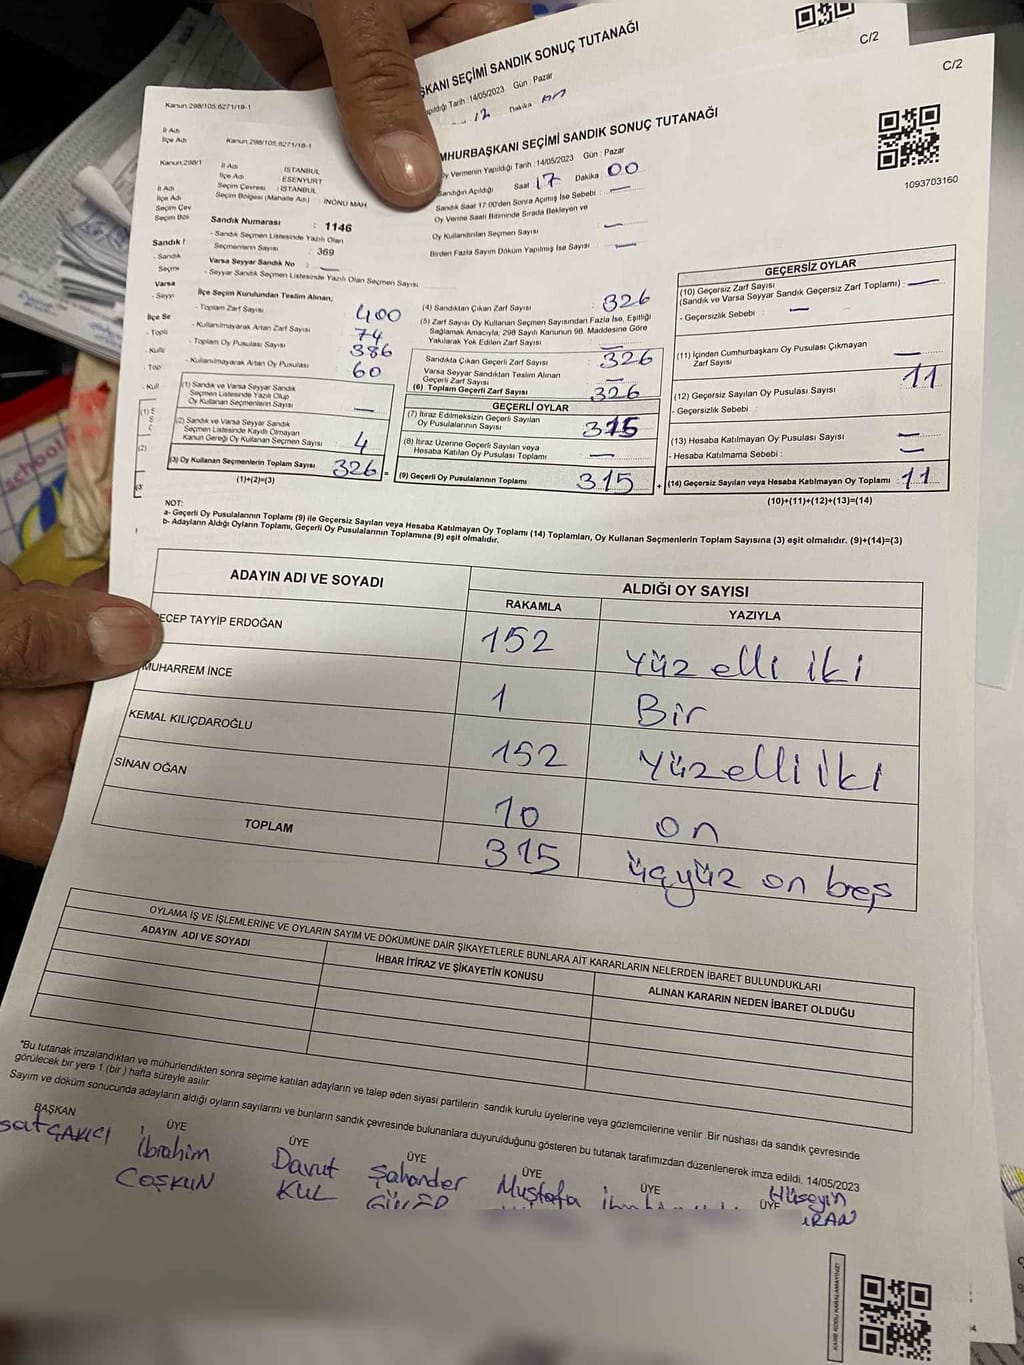 ŞKANI SEÇİMİ SANDIK SONUÇ TUTANAĞI
C/2
apıldığı Tarih : 14/05/2023 Gün : Pazar
12 Dakika
Kanun:298/105,6271/18-1
C/2
MHURBAŞKANI SEÇİMİ SANDIK SONUÇ TUTANAĞI
İl Adı
İlçe Adı
Kanun:298/105,6271/18-1
Oy Vermenin Yapıldığı Tarih : 14/05/2023 Gün : Pazar
Sandığın Açıldığı Saat 17 Dakika : 00
1093703160
Kanun:298/1
İl Adı : İSTANBUL
İlçe Adı : ESENYURT
Seçim Çevresi : İSTANBUL
Seçim Bölgesi (Mahalle Adı) : İNÖNÜ MAH
İl Adı
İlçe Adı
Seçim Çev
Seçim Böl
Sandık Saat 17:00'den Sonra Açılmış İse Sebebi : —
Oy Verme Saati Bitiminde Sırada Bekleyen ve
Oy Kullandırılan Seçmen Sayısı —
Birden Fazla Sayım Döküm Yapılmış İse Sayısı : —
Sandık Numarası : 1146
- Sandık Seçmen Listesinde Yazılı Olan
Seçmenlerin Sayısı : 369
Varsa Seyyar Sandık No : —
- Seyyar Sandık Seçmen Listesinde Yazılı Olan Seçmen Sayısı
Sandık
- Sandık
Seçme
Varsa
- Seyy
İlçe Se
- Topl
- Kulla
- Top
- Kull
İlçe Seçim Kurulundan Teslim Alınan;
- Toplam Zarf Sayısı : 400
- Kullanılmayarak Artan Zarf Sayısı : 74
- Toplam Oy Pusulası Sayısı : 386
- Kullanılmayarak Artan Oy Pusulası : 60
(1) Sandık ve Varsa Seyyar Sandık
Seçmen Listesinde Yazılı Olup
Oy Kullanan Seçmenlerin Sayısı : —
(2) Sandık ve Varsa Seyyar Sandık
Seçmen Listesinde Kayıtlı Olmayan
Kanun Gereği Oy Kullanan Seçmen Sayısı : 4
(3) Oy Kullanan Seçmenlerin Toplam Sayısı : 326
(1)+(2)=(3)
(4) Sandıktan Çıkan Zarf Sayısı : 326
(5) Zarf Sayısı Oy Kullanan Seçmen Sayısından Fazla İse, Eşitliği
Sağlamak Amacıyla, 298 Sayılı Kanunun 98. Maddesine Göre
Yakılarak Yok Edilen Zarf Sayısı : —
Sandıkta Çıkan Geçerli Zarf Sayısı : 326
Varsa Seyyar Sandıktan Teslim Alınan
Geçerli Zarf Sayısı : —
(6) Toplam Geçerli Zarf Sayısı : 326
GEÇERLİ OYLAR
(7) İtiraz Edilmeksizin Geçerli Sayılan
Oy Pusulalarının Sayısı : 315
(8) İtiraz Üzerine Geçerli Sayılan veya
Hesaba Katılan Oy Pusulası Toplamı : —
(9) Geçerli Oy Pusulalarının Toplamı : 315
GEÇERSİZ OYLAR
(10) Geçersiz Zarf Sayısı
(Sandık ve Varsa Seyyar Sandık Geçersiz Zarf Toplamı) : —
- Geçersizlik Sebebi : —
(11) İçinden Cumhurbaşkanı Oy Pusulası Çıkmayan
Zarf Sayısı : —
(12) Geçersiz Sayılan Oy Pusulası Sayısı : 11
- Geçersizlik Sebebi :
(13) Hesaba Katılmayan Oy Pusulası Sayısı : —
- Hesaba Katılmama Sebebi : —
(14) Geçersiz Sayılan veya Hesaba Katılmayan Oy Toplamı : 11
(10)+(11)+(12)+(13)=(14)
NOT:
a- Geçerli Oy Pusulalarının Toplamı (9) ile Geçersiz Sayılan veya Hesaba Katılmayan Oy Toplamı (14) Toplamları, Oy Kullanan Seçmenlerin Toplam Sayısına (3) eşit olmalıdır. (9)+(14)=(3)
b- Adayların Aldığı Oyların Toplamı, Geçerli Oy Pusulalarının Toplamına (9) eşit olmalıdır.
ADAYIN ADI VE SOYADI
ALDIĞI OY SAYISI
RAKAMLA YAZIYLA
ECEP TAYYİP ERDOĞAN 152 Yüz elli iki
MUHARREM İNCE 1 Bir
KEMAL KILIÇDAROĞLU 152 Yüzelli iki
SİNAN OĞAN 10 on
TOPLAM 315 üçyüz on beş
OYLAMA İŞ VE İŞLEMLERİNE VE OYLARIN SAYIM VE DÖKÜMÜNE DAİR ŞİKAYETLERLE BUNLARA AİT KARARLARIN NELERDEN İBARET BULUNDUKLARI
ADAYIN ADI VE SOYADI
İHBAR İTİRAZ VE ŞİKAYETİN KONUSU
ALINAN KARARIN NEDEN İBARET OLDUĞU
*Bu tutanak imzalandıktan ve mühürlendikten sonra seçime katılan adayların ve talep eden siyasi partilerin sandık kurulu üyelerine veya gözlemcilerine verilir .Bir nüshası da sandık çevresinde
görülecek bir yere 1 (bir ) hafta süreyle asılır.
Sayım ve döküm sonucunda adayların aldığı oyların sayılarını ve bunların sandık çevresinde bulunanlara duyurulduğunu gösteren bu tutanak tarafımızdan düzenlenerek imza edildi. 14/05/2023
BAŞKAN ÜYE ÜYE ÜYE ÜYE ÜYE ÜYE
İbrahim Davut Şahander Mustafa Hüseyin
COŞKUN KUL
KARE KODU KARALAMAYINIZ!